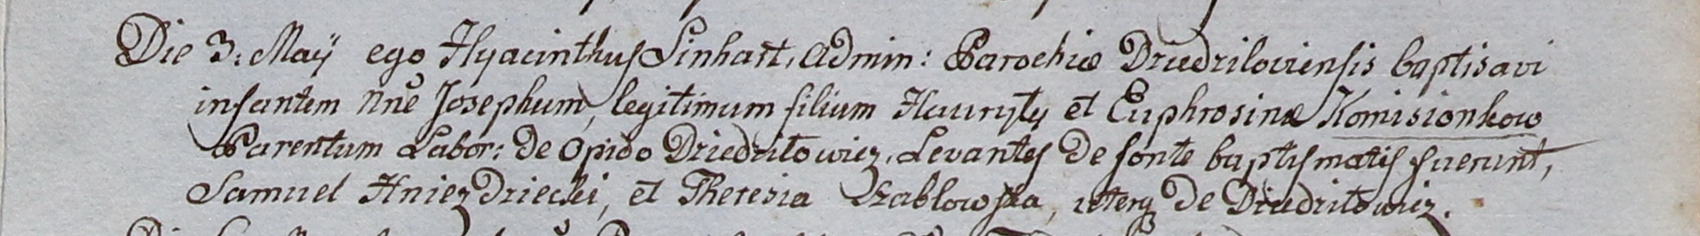 Die 3. Maÿ ego Hyacinthus Linhart, Admin: Parochiæ Dziedziloviensis baptisavi
infantem nne Josephum, legitimum filium Hauryły et Euphrosinæ Komisionkow
Parentum Labor: de Opido Dziedziłowicz. Levantes de fonte baptismatis fuerunt,
Samuel Hniezdziecki, et Theresia Szabłowska, uterq de Dziedziłowicz.